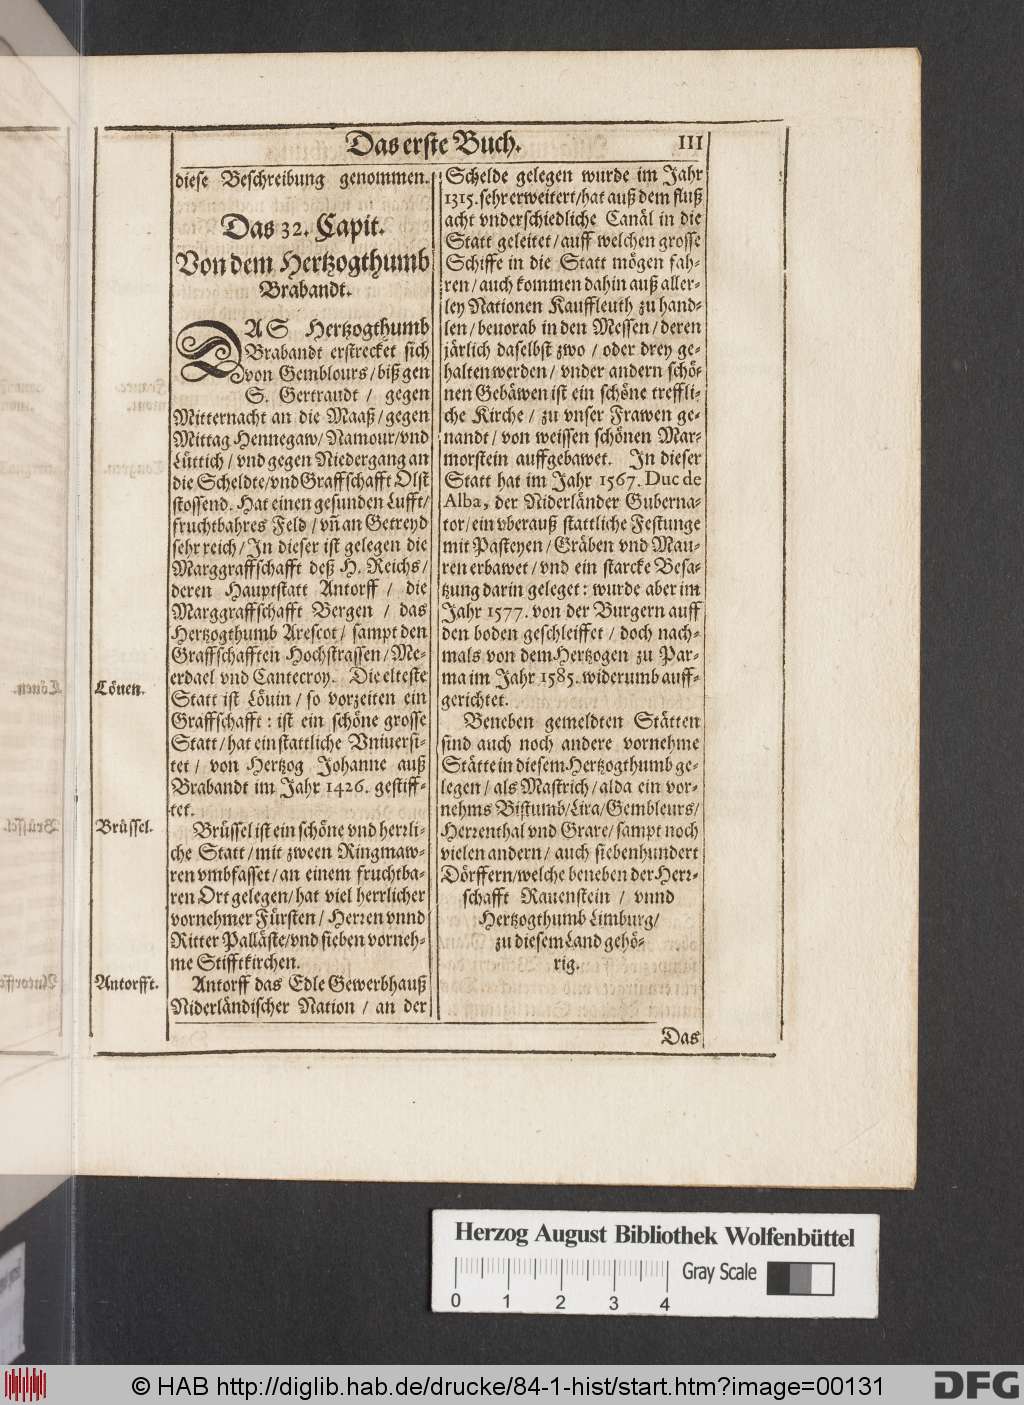 Das erste Buch.
111
diese Beschreibung genommen.
Das 32. Capit.
Von dem Hertzogthumb
Brabandt.
DAS Hertzogthumb
Brabandt erstrecket sich
von Gemblours / biß gen
S. Gertraudt / gegen
Mitternacht an die Maaß / gegen
Mittag Hennegaw / Namour / vnd
Lüttich / vnd gegen Niedergang an
die Scheldte / vnd Graffschafft Olst
stossend. Hat einen gesunden Lufft /
fruchtbahres Feld / vñ an Getreyd
sehr reich / In dieser ist gelegen die
Marggraffschafft deß H. Reichs /
deren Hauptstatt Antorff / die
Marggraffschafft Bergen / das
Hertzogthumb Arescot / sampt den
Graffschafften Hochstrassen / Me-
erdael vnd Cantecroy. Die elteste
Statt ist Löuin / so vorzeiten ein
Graffschafft : ist ein schöne grosse
Statt / hat ein stattliche Vniuersi-
tet / von Hertzog Johanne auß
Brabandt im Jahr 1426. gestiff-
tet.
Brüssel ist ein schöne vnd herrli-
che Statt / mit zween Ringmaw-
ren vmbfasset / an einem fruchtba-
ren Ort gelegen / hat viel herrlicher
vornehmer Fürsten / Herren vnnd
Ritter Palläste / vnd sieben vorneh-
me Stifftkirchen.
Antorff das Edle Gewerbhauß
Niderländischer Nation / an der
Löuen.
Brüssel.
Antorfft.
Schelde gelegen wurde im Jahr
1315. sehr erweitert / hat auß dem fluß
acht vnderschiedliche Canäl in die
Statt geleitet / auff welchen grosse
Schiffe in die Statt mögen fah-
ren / auch kommen dahin auß aller-
ley Nationen Kauffleuth zu hand-
len / beuorab in den Messen / deren
järlich daselbst zwo / oder drey ge-
halten werden / vnder andern schö-
nen Gebäwen ist ein schöne treffli-
che Kirche / zu vnser Frawen ge-
nandt / von weissen schönen Mar-
morstein auffgebawet. In dieser
Statt hat im Jahr 1567. Duc de
Alba, der Niderländer Guberna-
tor / ein vberauß stattliche Festunge
mit Pasteyen / Gräben vnd Mau-
ren erbawet / vnd ein starcke Besa-
tzung darin geleget : wurde aber im
Jahr 1577. von der Burgern auff
den boden geschleiffet / doch nach-
mals von dem Hertzogen zu Par-
ma im Jahr 1585. widerumb auff-
gerichtet.
Beneben gemeldten Stätten
sind auch noch andere vornehme
Stätte in diesem Hertzogthumb ge-
legen / als Mastrich / alda ein vor-
nehms Bistumb / Lira / Gembleurs /
Herrenthal vnd Grare / sampt noch
vielen andern / auch siebenhundert
Dörffern / welche beneben der Herr-
schafft Rauenstein / vnnd
Hertzogthumb Limburg /
zu diesem Land gehö-
rig.
Das
Herzog August Bibliothek Wolfenbüttel
0 1 2 3 4
Gray Scale
© HAB http://diglib.hab.de/drucke/84-1-hist/start.htm?image=00131
DFG